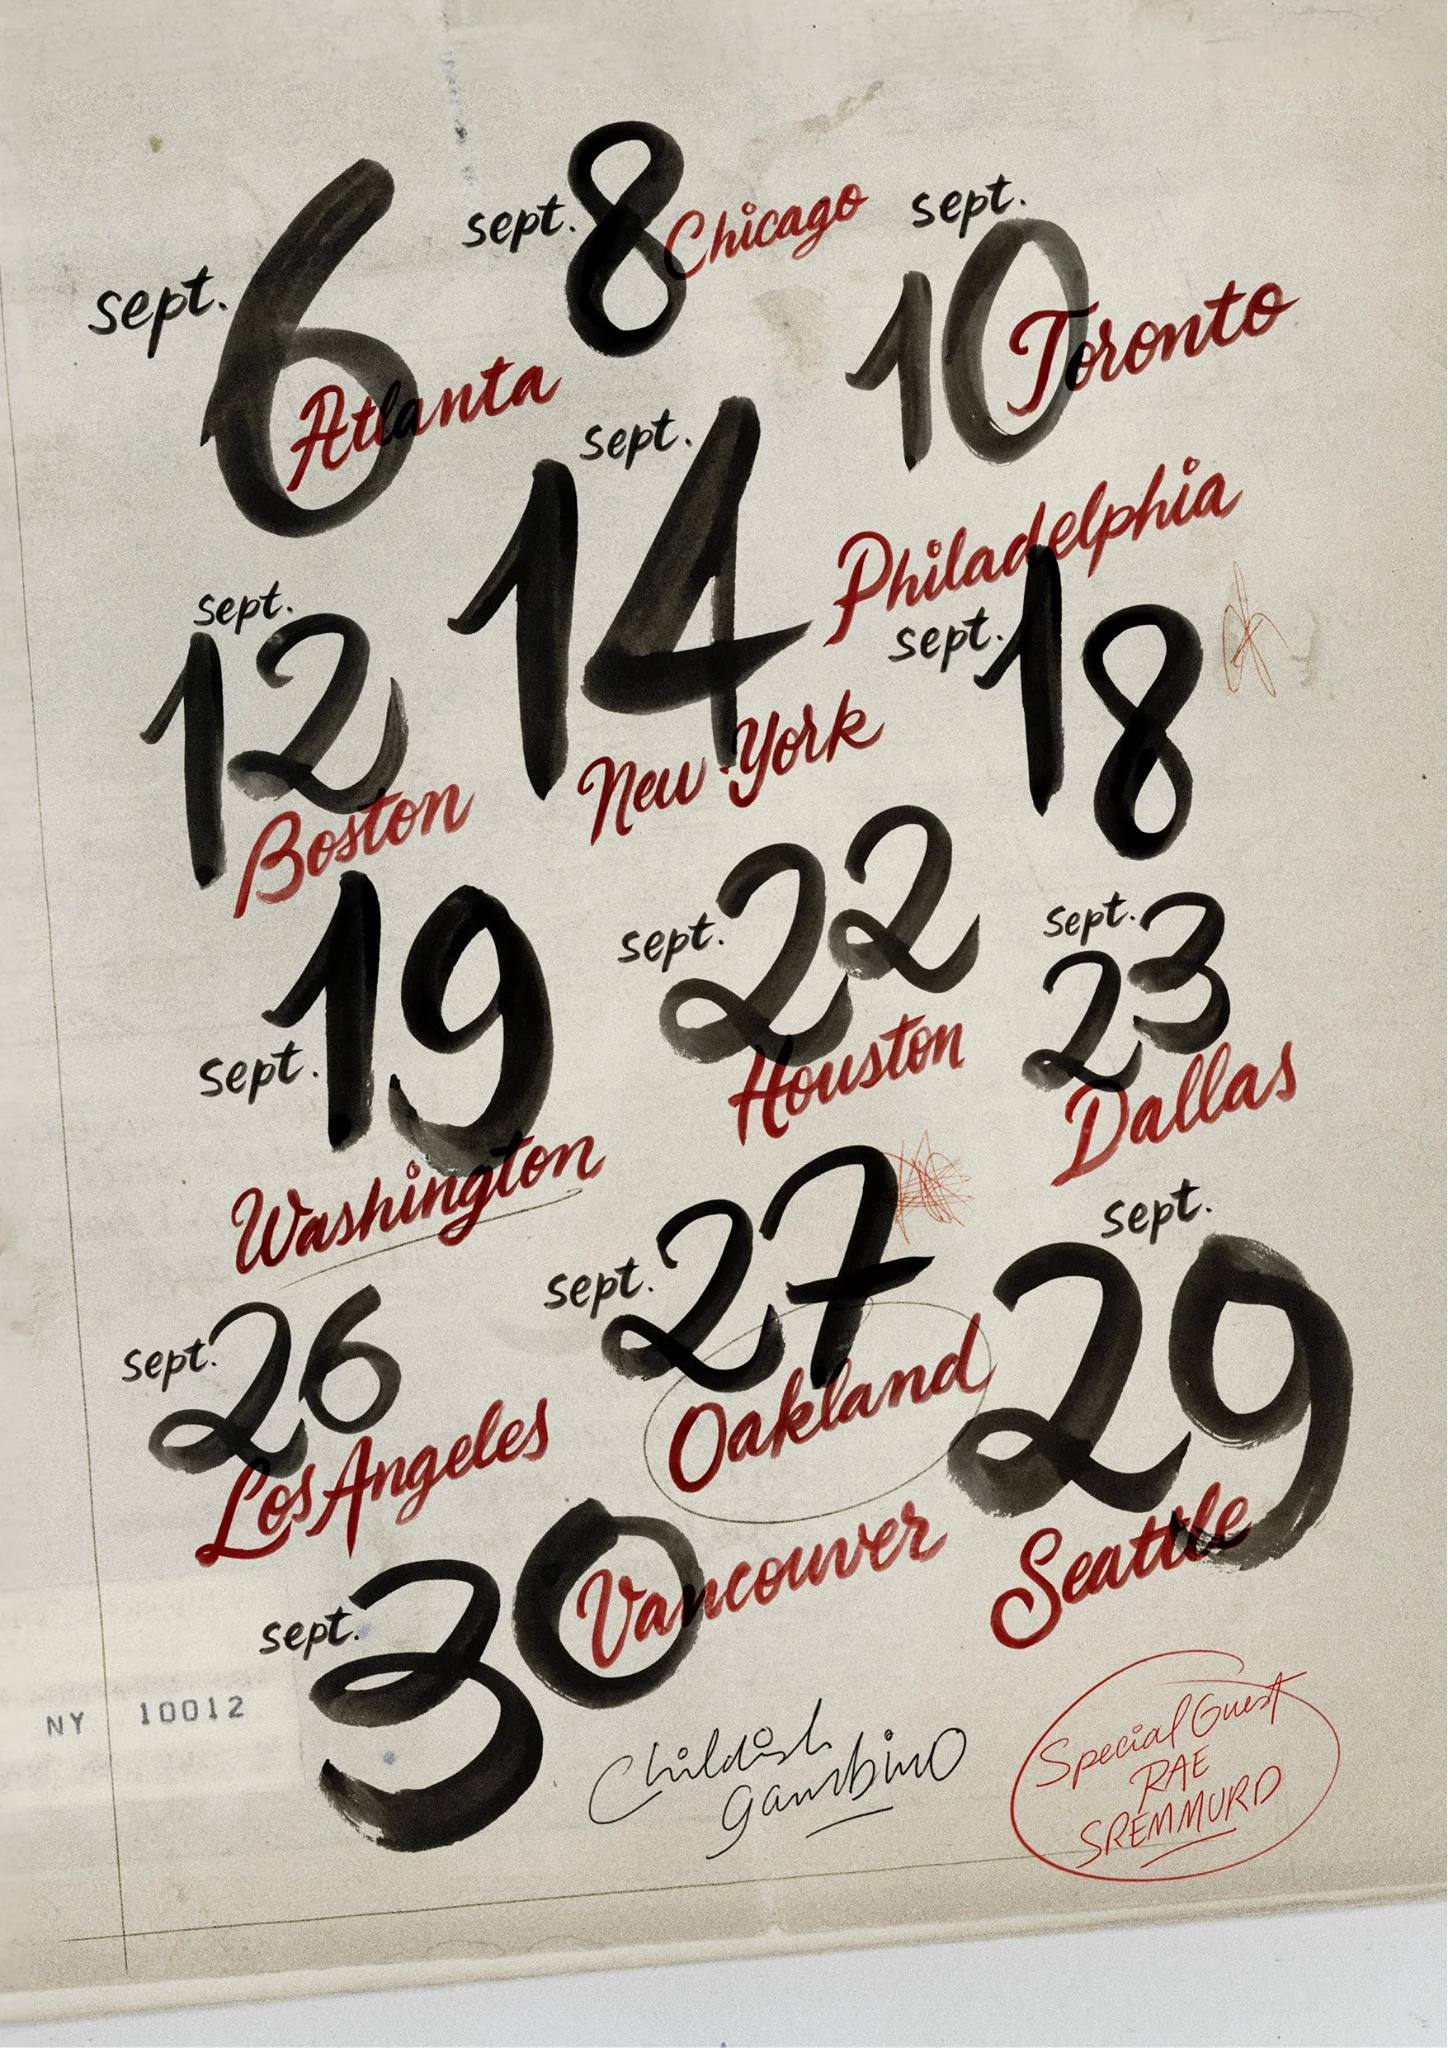 sept. 6 Atlanta
sept. 8 Chicago
sept. 10 Toronto
sept. 12 Boston
sept. 14 New York
Philadelphia
sept. 18
sept. 19 Washington
sept. 22 Houston
sept. 23 Dallas
sept. 26 Los Angeles
sept. 27 Oakland
sept. 29 Seattle
sept. 30 Vancouver
NY 10012
Childish
gambino
Special Guest
RAE
SREMMURD